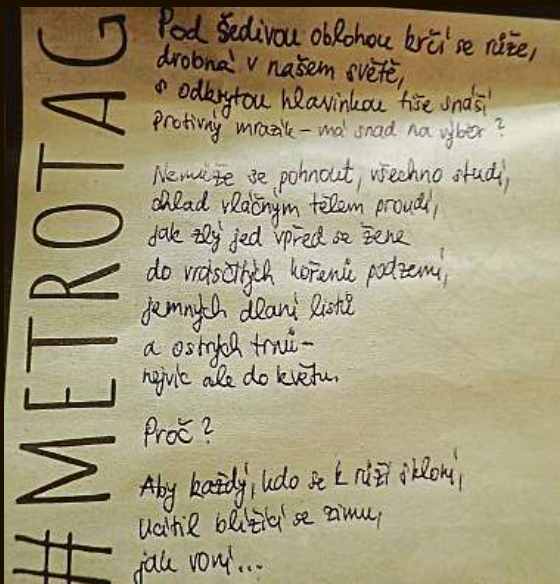 #METROTAG
Pod šedivou oblohou krčí se růže,
drobná v našem světě,
s odkrytou hlavinkou tiše snáší
Protivný mrazík – má snad na výběr?
Nemůže se pohnout, všechno studí,
chlad vláčným tělem proudí,
jak zlý jed vpřed se žene
do vrásčitých kořenů podzemí,
jemných dlaní listů
a ostrých trnů –
nejvíc ale do květu.
Proč?
Aby každý, kdo se k růži skloní,
ucítil blížící se zimu,
jak voní...